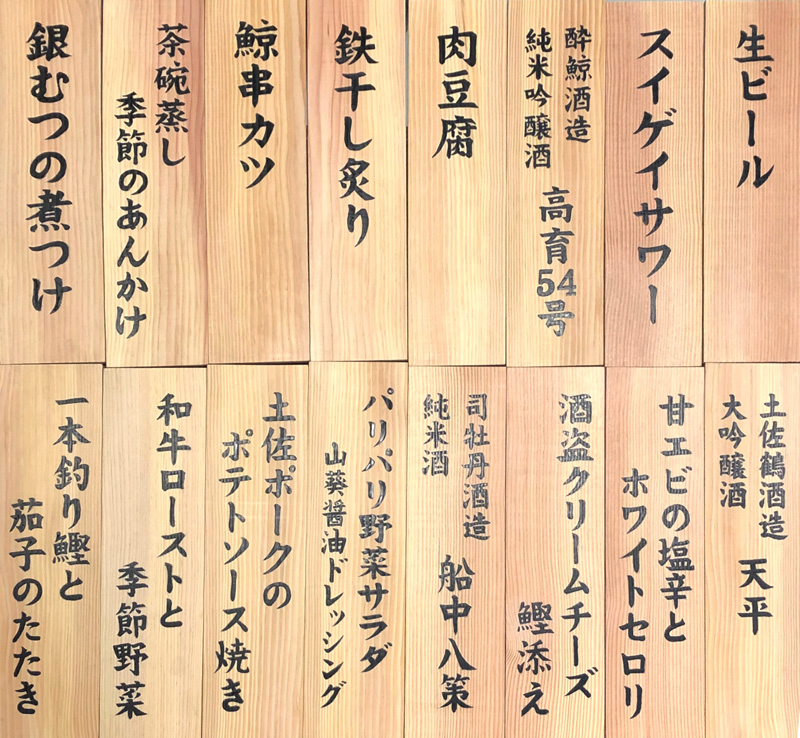 生ビール
スイゲイサワー
酔鯨酒造
純米吟醸酒
高育54号
肉豆腐
鉄干し炙り
鯨串カツ
茶碗蒸し
季節のあんかけ
銀むつの煮つけ
土佐鶴酒造
大吟醸酒
天平
甘エビの塩辛と
ホワイトセロリ
酒盗クリームチーズ
鰹添え
司牡丹酒造
純米酒
船中八策
パリパリ野菜サラダ
山葵醤油ドレッシング
土佐ポークの
ポテトソース焼き
和牛ローストと
季節野菜
一本釣り鰹と
茄子のたたき